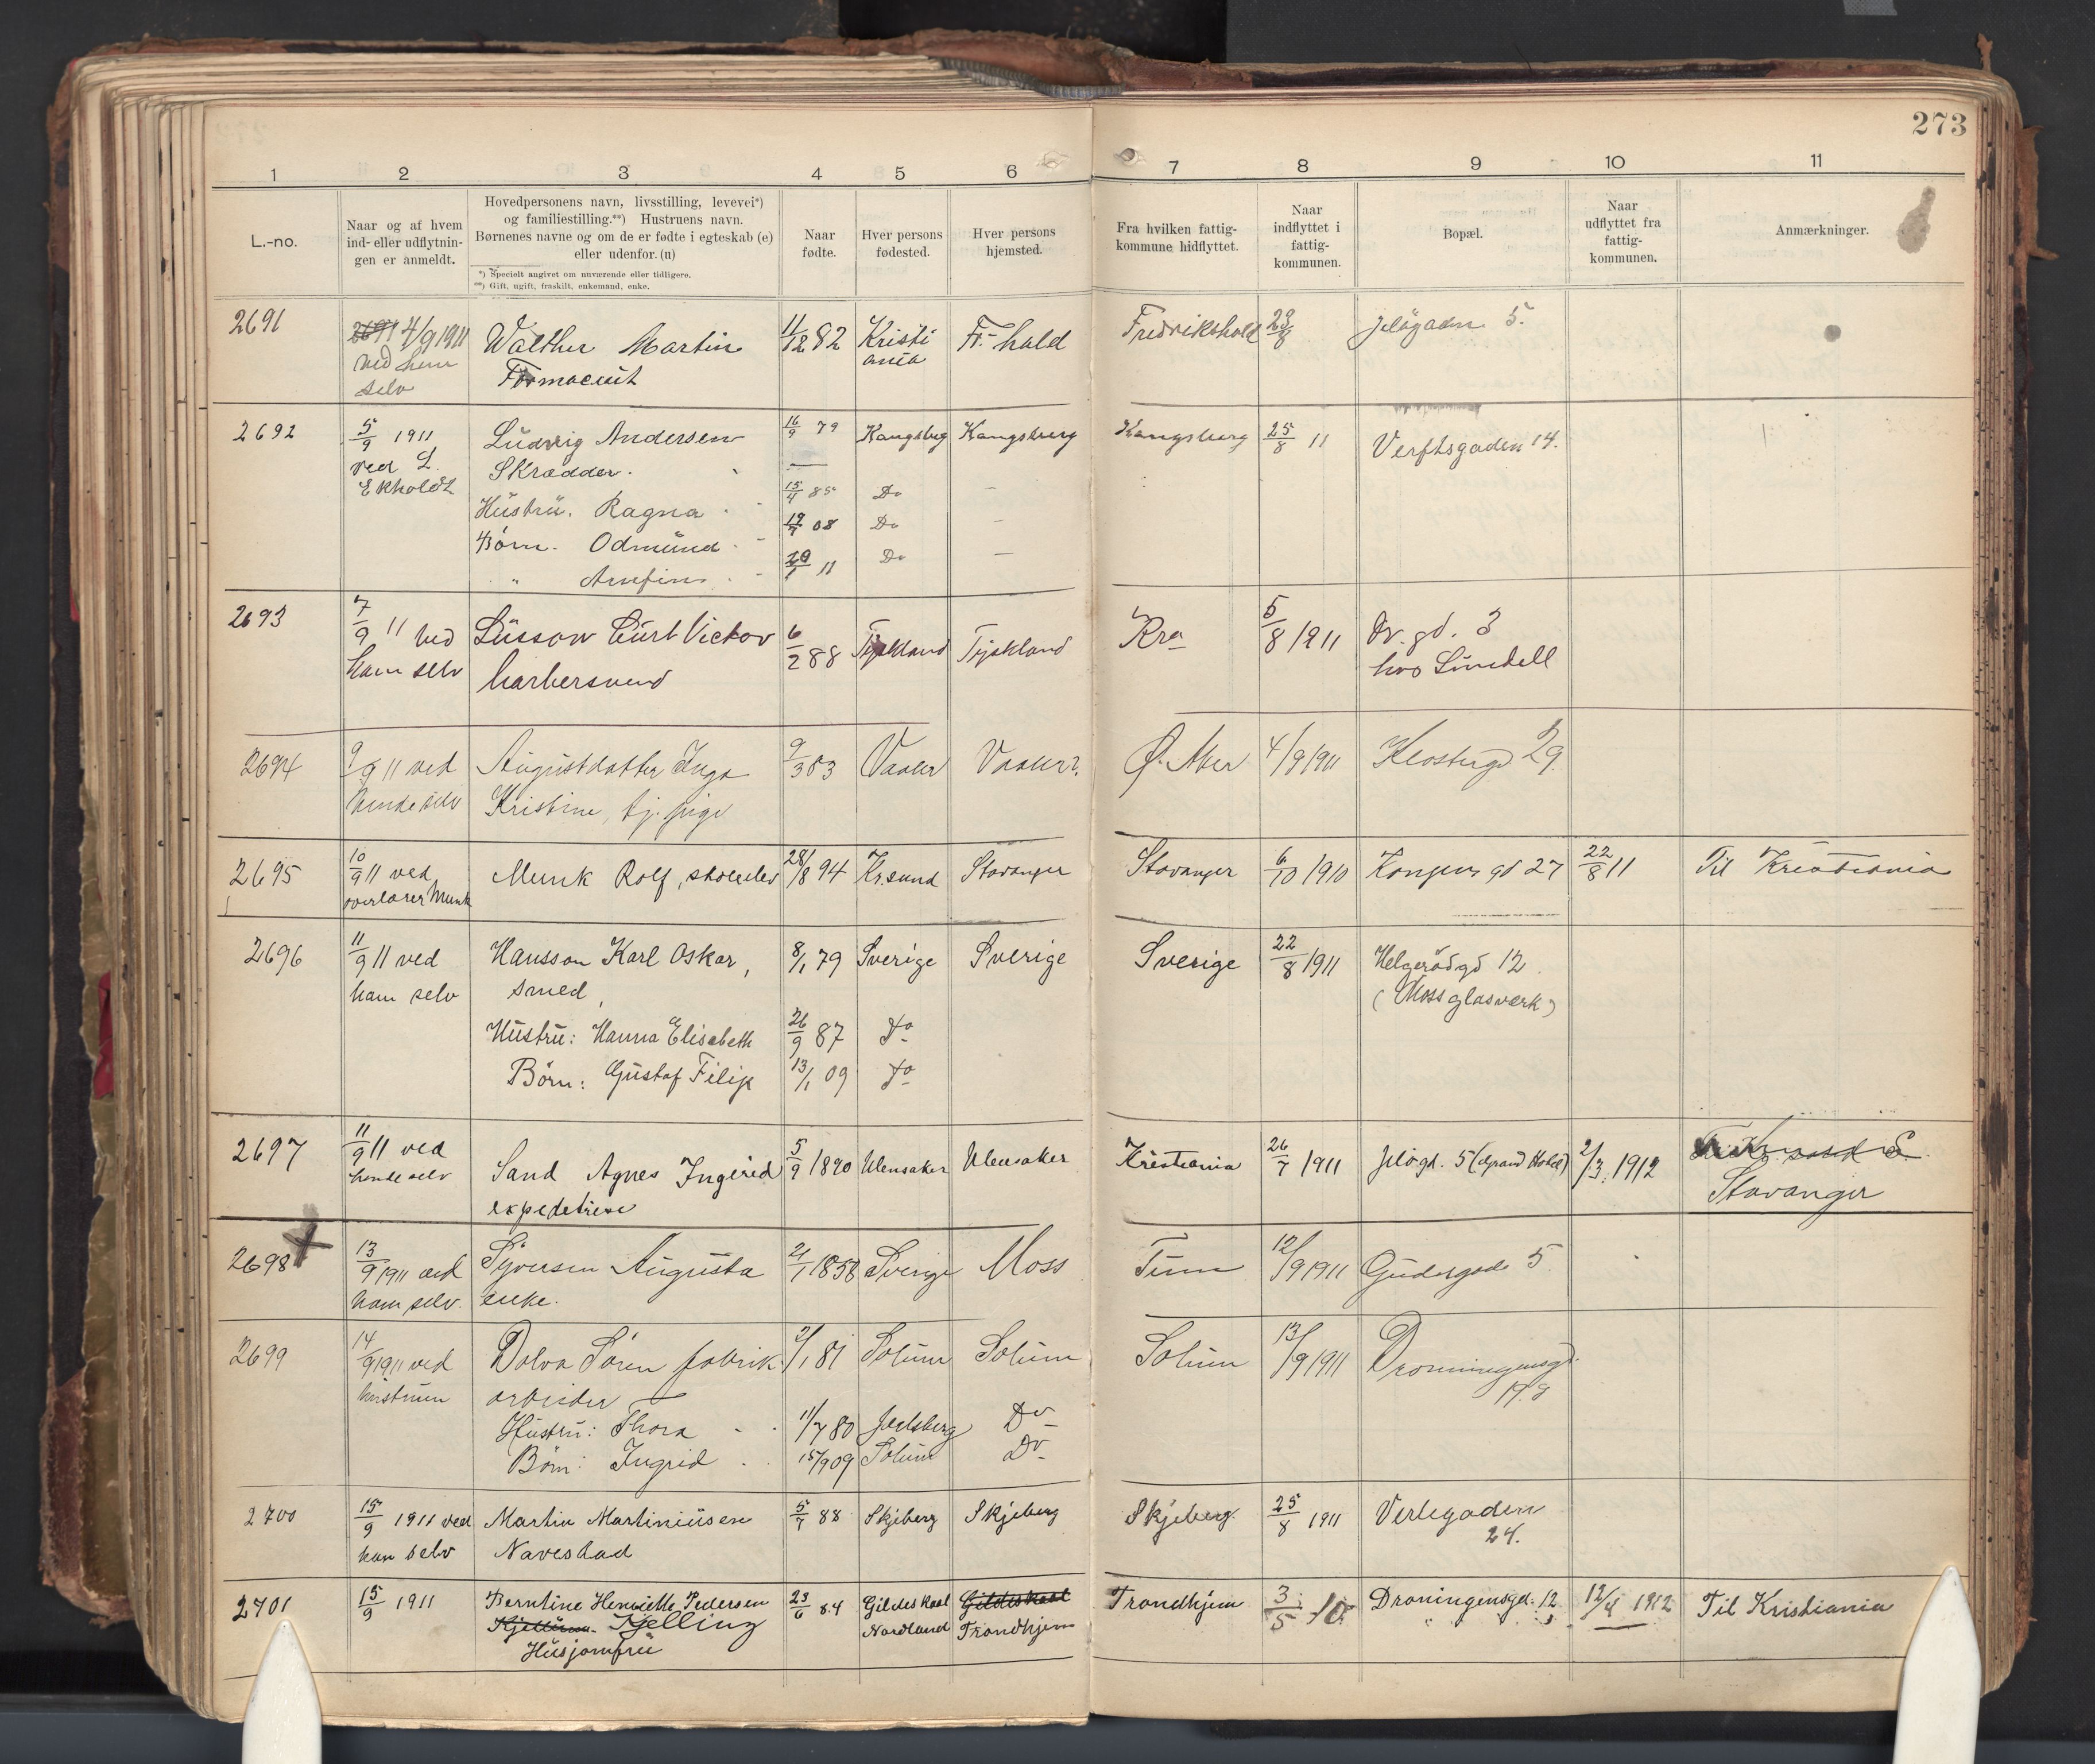 273
1 2 3 4 5 6 7 8 9 10 11
L.-no.
Naar og af hvem
ind- eller udflytnin-
gen er anmeldt.
Hovedpersonens navn, livsstilling, levevei*)
og familiestilling.**) Hustruens navn.
Børnenes navne og om de er fødte i egteskab (e)
eller udenfor. (u)
*) Specielt angivet om nuværende eller tidligere.
**) Gift, ugift, fraskilt, enkemand, enke.
Naar
fødte.
Hver persons
fødested.
Hver persons
hjemsted.
Fra hvilken fattig-
kommune hidflyttet.
Naar
indflyttet i
fattig-
kommunen.
Bopæl.
Naar
udflyttet fra
fattig-
kommunen.
Anmærkninger.
2691 2691 4/9 1911 Walther Martin 11/12 82 Kristi Fr.hald Fredrikshald 23/8 Jeløgaden 5.
ved ham Farmaceut ania
selv
2692 5/9 1911 Ludvig Andersen 16/9 79 Kongsbeg Kongsberg Kongsberg 25/8 11 Verftsgaden 14.
ved L. Skrædder.
Ekholdt Hustru. Ragna 15/4 85 Do
Børn. Odmund 08 Do
" Arnfin 11 Do
2693 7/9 11 ved Lüssow Curt Victor 6/2 88 Tyskland Tyskland Kra 5/8 1911 Dr. gd. 3
ham selv barbersvend hos Lindell
2694 9/9 11 ved Augustdatter Inga 9/3 83 Vaaler Vaaler? Ø. Aker 4/9 1911 Klostergd 29.
hende selv Kristine, tj. pige
2695 10/9 11 ved Munk Rolf, skoleelev 28/8 94 Kr.sund Stavanger Stavanger 6/10 1910 Kongens gd 27 22/8 11 Til Kristiania
overlærer Munk
2696 11/9 11 ved Hansson Karl Oskar, 8/1 79 Sverige Sverige Sverige 22/8 1911 Helgerødgd 12
ham selv smed, (Moss glasverk)
Hustru: Hanna Elisabeth 26/9 87 Do
Børn: Gustaf Filip 13/1 09 Do
2697 11/9 11 ved Sand Agnes Ingerid 5/9 1890 Ulensaker Ulensaker Kristiania 26/7 1911 Jeløgd. 5 (Grand Hotel) 2/3 1912
hende selv expeditrise Stavanger
2698 13/9 1911 ved Syversen Augusta 2/1 1858 Sverige Moss Tune 12/9 1911 Gudesgade 5
ham selv. enke.
2699 14/9 1911 ved Dolva Søren fabrik 2/1 81 Solum Solum Solum 13/9 1911 Dronningensgd.
hustruen arbeider 19.
Hustru: Thora 11/7 80 Jarlsberg Do
Børn: Ingrid 15/9 09 Solum Do
2700 15/9 1911 ved Martin Martiniusen 5/7 88 Skjeberg Skjeberg Skjeberg. 25/8 1911 Verlegaden
han selv Navestad 24.
2701 15/9 1911 Berntine Henriette Pedersen 23/6 84 Gildeskaal Gildeskaal Trondhjem 3/5 10. Dronningensgd. 12 12/4 1912 Til Kristiania
Kjelling Nordland Trondhjem
Husjomfru